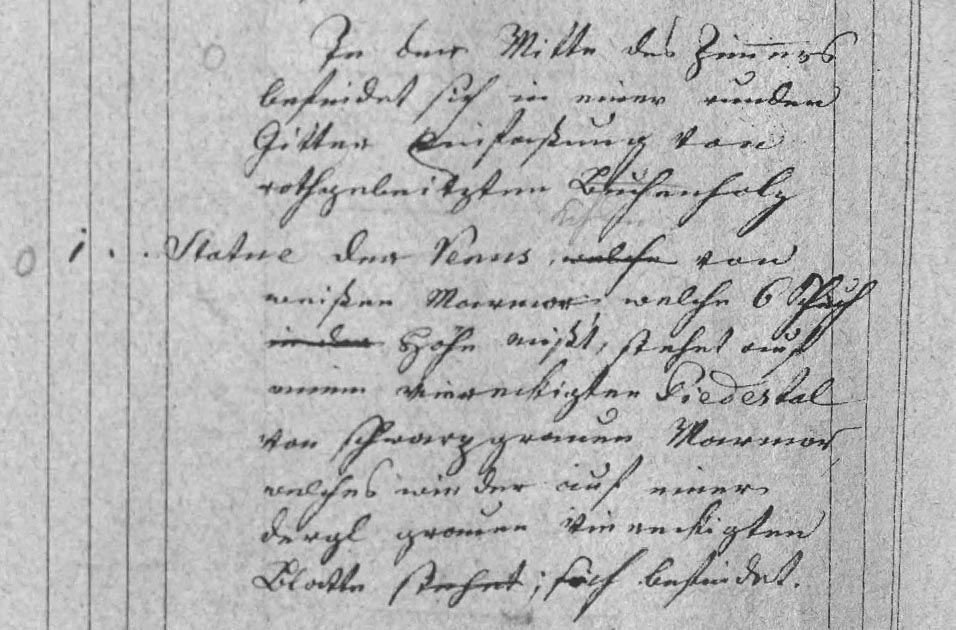 In der Mitte des Zimers
befindet sich in einer runden
Gitter Einfaßung von
rothgebeitzten Buchenholz
1 . . Statue der Venus, welche von
weißen Marmor, welche 6 Schuh
in der Höhe mißt, stehet auf
einem viereckigten Piedestal
von schwarzgrauen Marmor,
welches wieder auf einer
dergl grauen viereckigten
Blatte stehet; sich befindet.